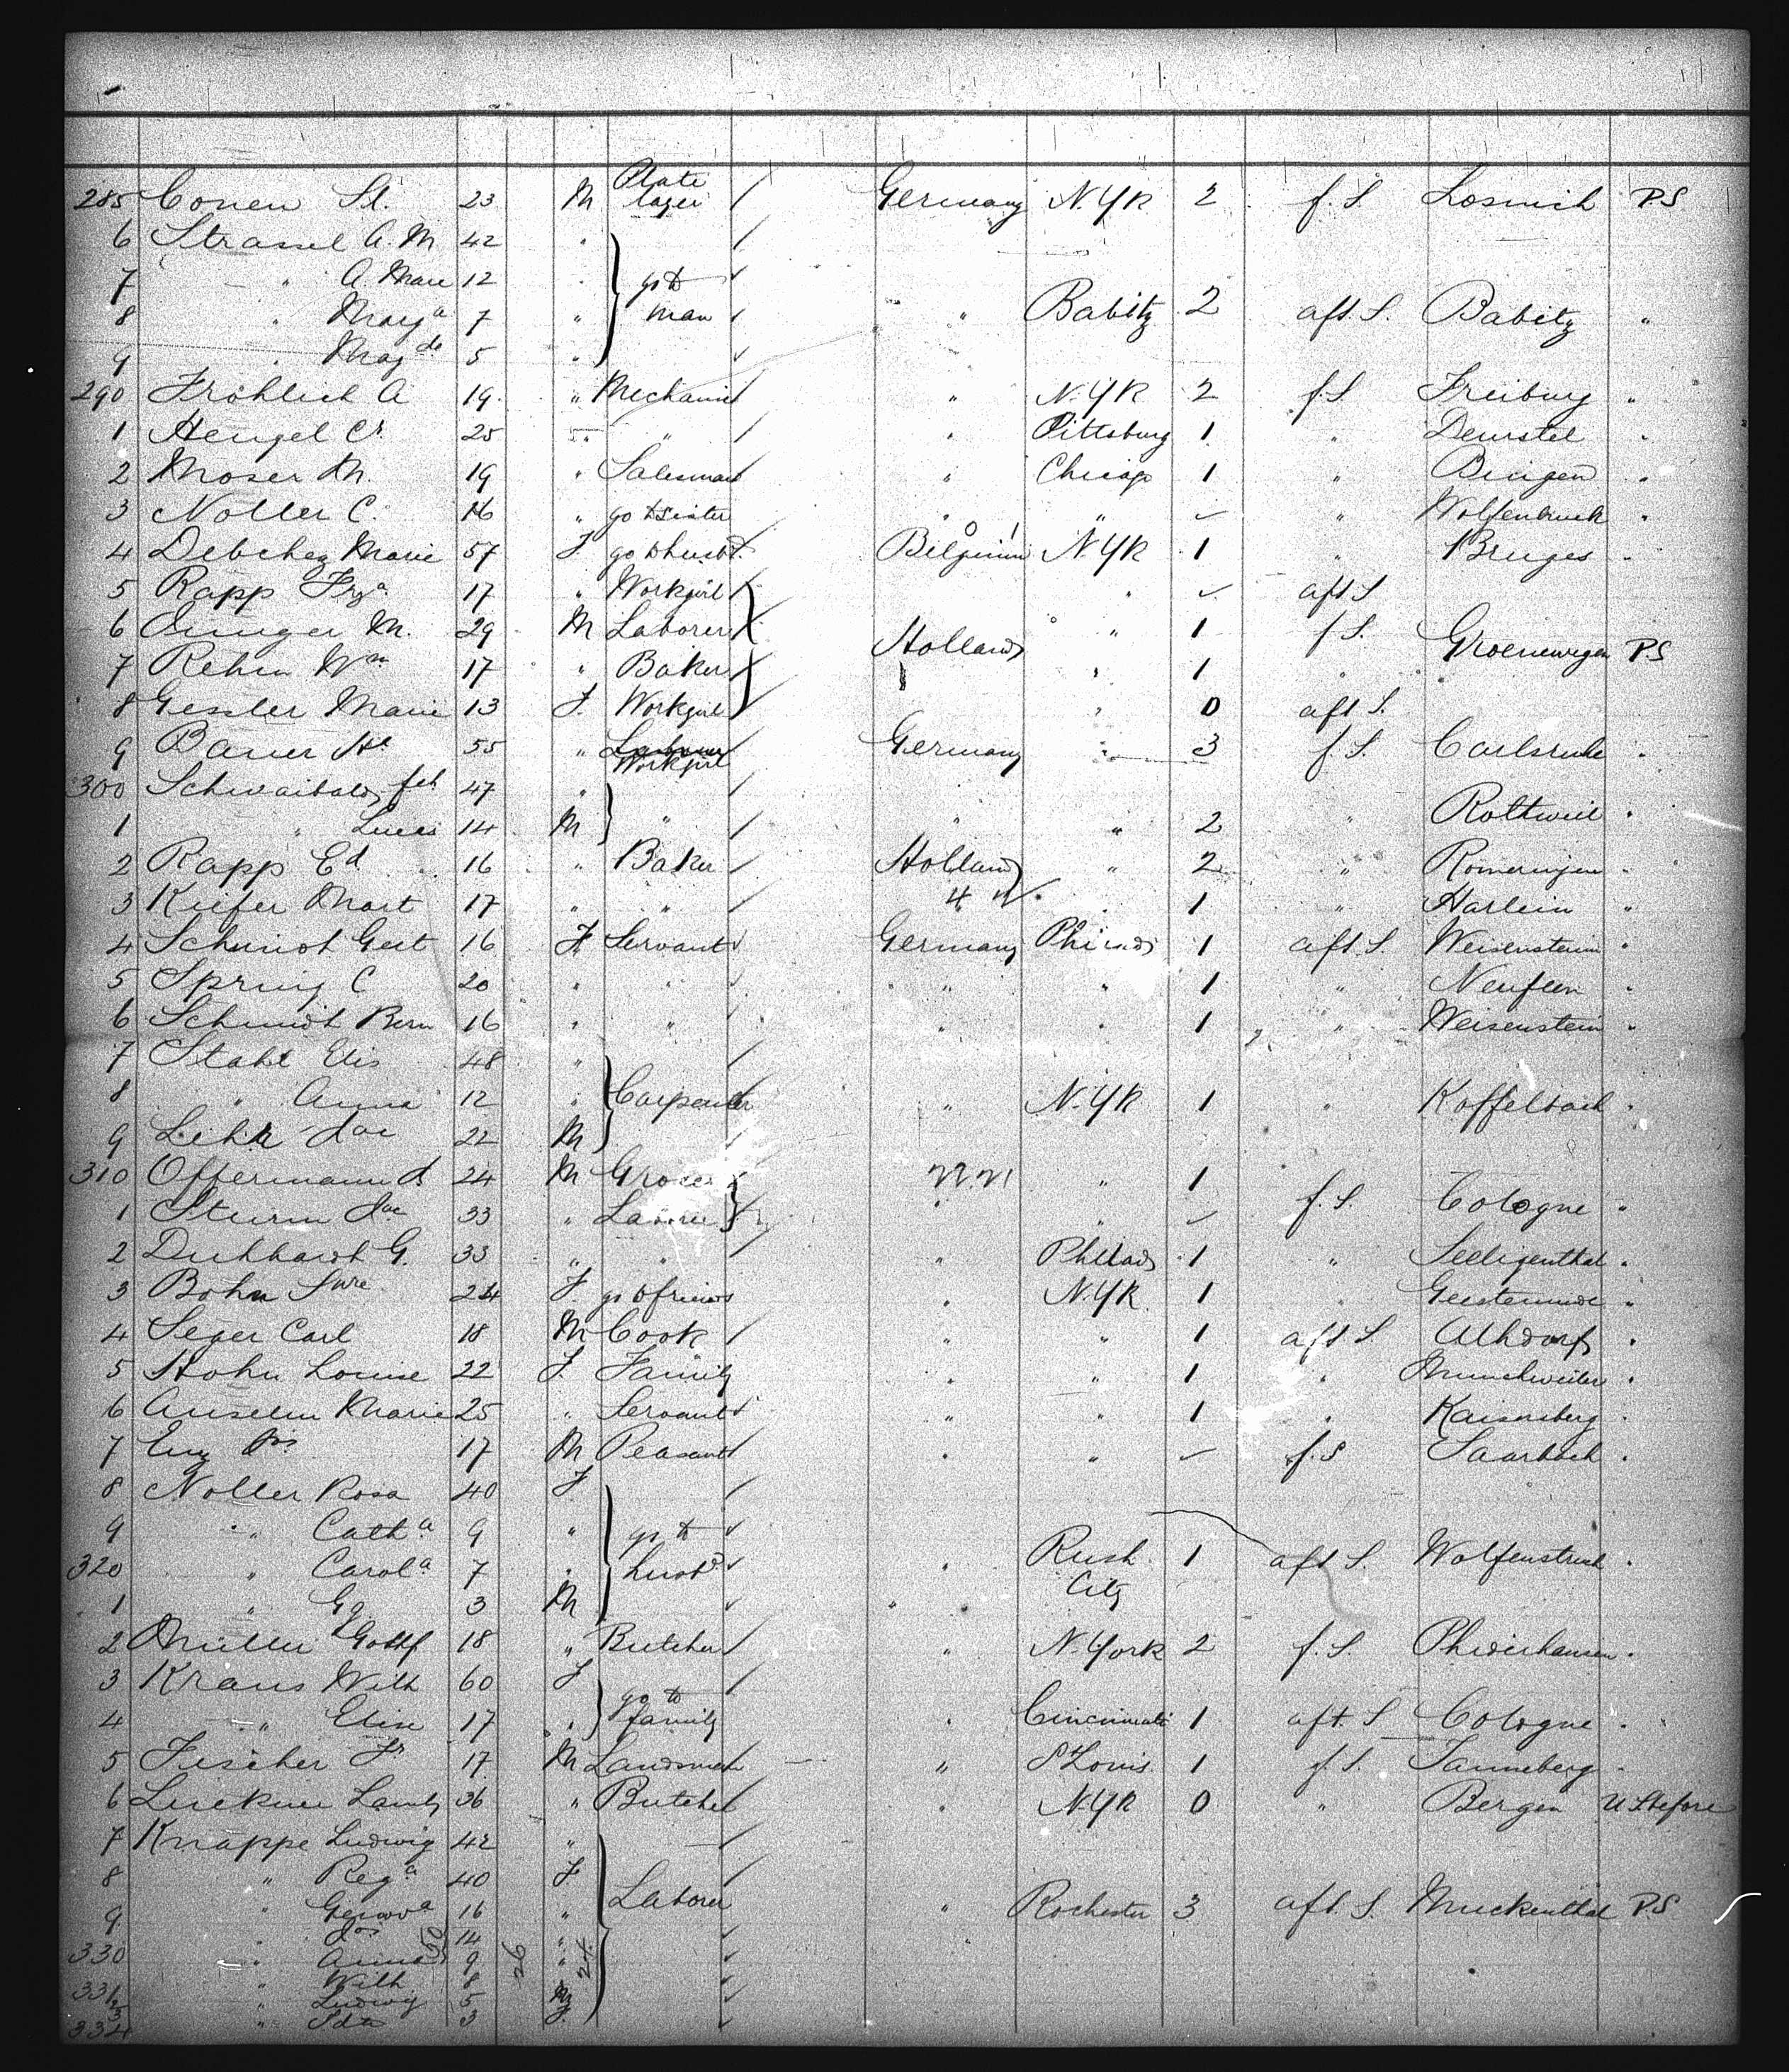 285 Conen St. 23 M Plate layer Germany N.YK 2 f. S Losnich P.S
6 Strassel A. M 42 "
7 " A. Marie 12 " go to
8 " Marga 7 " man " Babitz 2 aft. S. Babitz "
9 " Magde 5 "
290 Fröhlich A 19 " Mechanic " N.YK 2 f.S Freiburg "
1 Hengel Cr 25 " " " Pittsburg 1 " Deurstel "
2 Moser M. 19 " Salesman " Chicago 1 " Bingen "
3 Noller C. 16 " go to sister " " " Wolfenbruck "
4 Debchez Marie 57 F go to husbd Belgium N.YK 1 " Bruges "
5 Rapp Frza 17 " Workgirl " aft S
6 M. 29 M Laborer Holland " 1 f S. Groenewegen P.S
7 Rehm Wm 17 " Baker " 1 "
8 Gessler Marie 13 F. Workgirl " 0 aft S.
9 Bauer 55 " Workgirl Germany " 3 f S. Carlsruhe "
300 Schwaibold 47 "
1 " Lucas 14 M " " " 2 " Rottweil "
2 Rapp Ed 16 " Baker Holland " 2 " Romeringen "
3 Kiefer Mart 17 " " 4 " 1 " Harlein "
4 Schmidt Gert 16 F Servant Germany Philad 1 aft. S. Weisenstein "
5 Spring C 20 " " " " 1 " Neufeen "
6 Schmidt Bern 16 " " " " 1 " Weisenstein "
7 Stahl Elis 48 "
8 " Anna 12 " Carpenter " N.YK 1 " Koffelbach "
9 Lehr Jac 22 M
310 Offermann J. 24 M Grocer " 1
1 Sturm Jac 33 " Laborer " " f. S. Cologne "
2 Duhhardt G. 33 " " " Philad 1 " Seeligenthal "
3 Bohn 24 F. go to friends " N.YK. 1 " Geestemunde "
4 Seger Carl 18 M Cook " " 1 aft S Althdorf "
5 Hohn Louise 22 F. Family " " 1 " Munchweiler "
6 Anselm Marie 25 " Servant " " 1 " Kaisersberg "
7 17 M Peasant " " f. S Saarbach "
8 Noller Rosa 40 F
9 " Catha 9 " go to
320 " Carola 7 " husbd " Rush City 1 aft S. Wolfenbruck "
1 " Gg 3 M "
2 Müller Gottf 18 " Butcher " N.York 2 f. S. "
3 Kraus Wilh 60 F
4 " Elise 17 " go to family " Cincinnati 1 aft. S Cologne "
5 Fischer Fr 17 M Landsman " St Louis 1 f. S. Tanneberg "
6 36 " Butcher " N.YK 0 " Bergen U.S before
7 Knappe Ludwig 42 "
8 " Rega 40 F
9 " Genova 16 " Laborer " Rochester 3 aft. S. Muckenthal P.S
" Jos 14 "
330 " Anna 9 "
" Wilh 8 "
331 " Ludwig 5 M
334 " Ida 3 F.
26 24